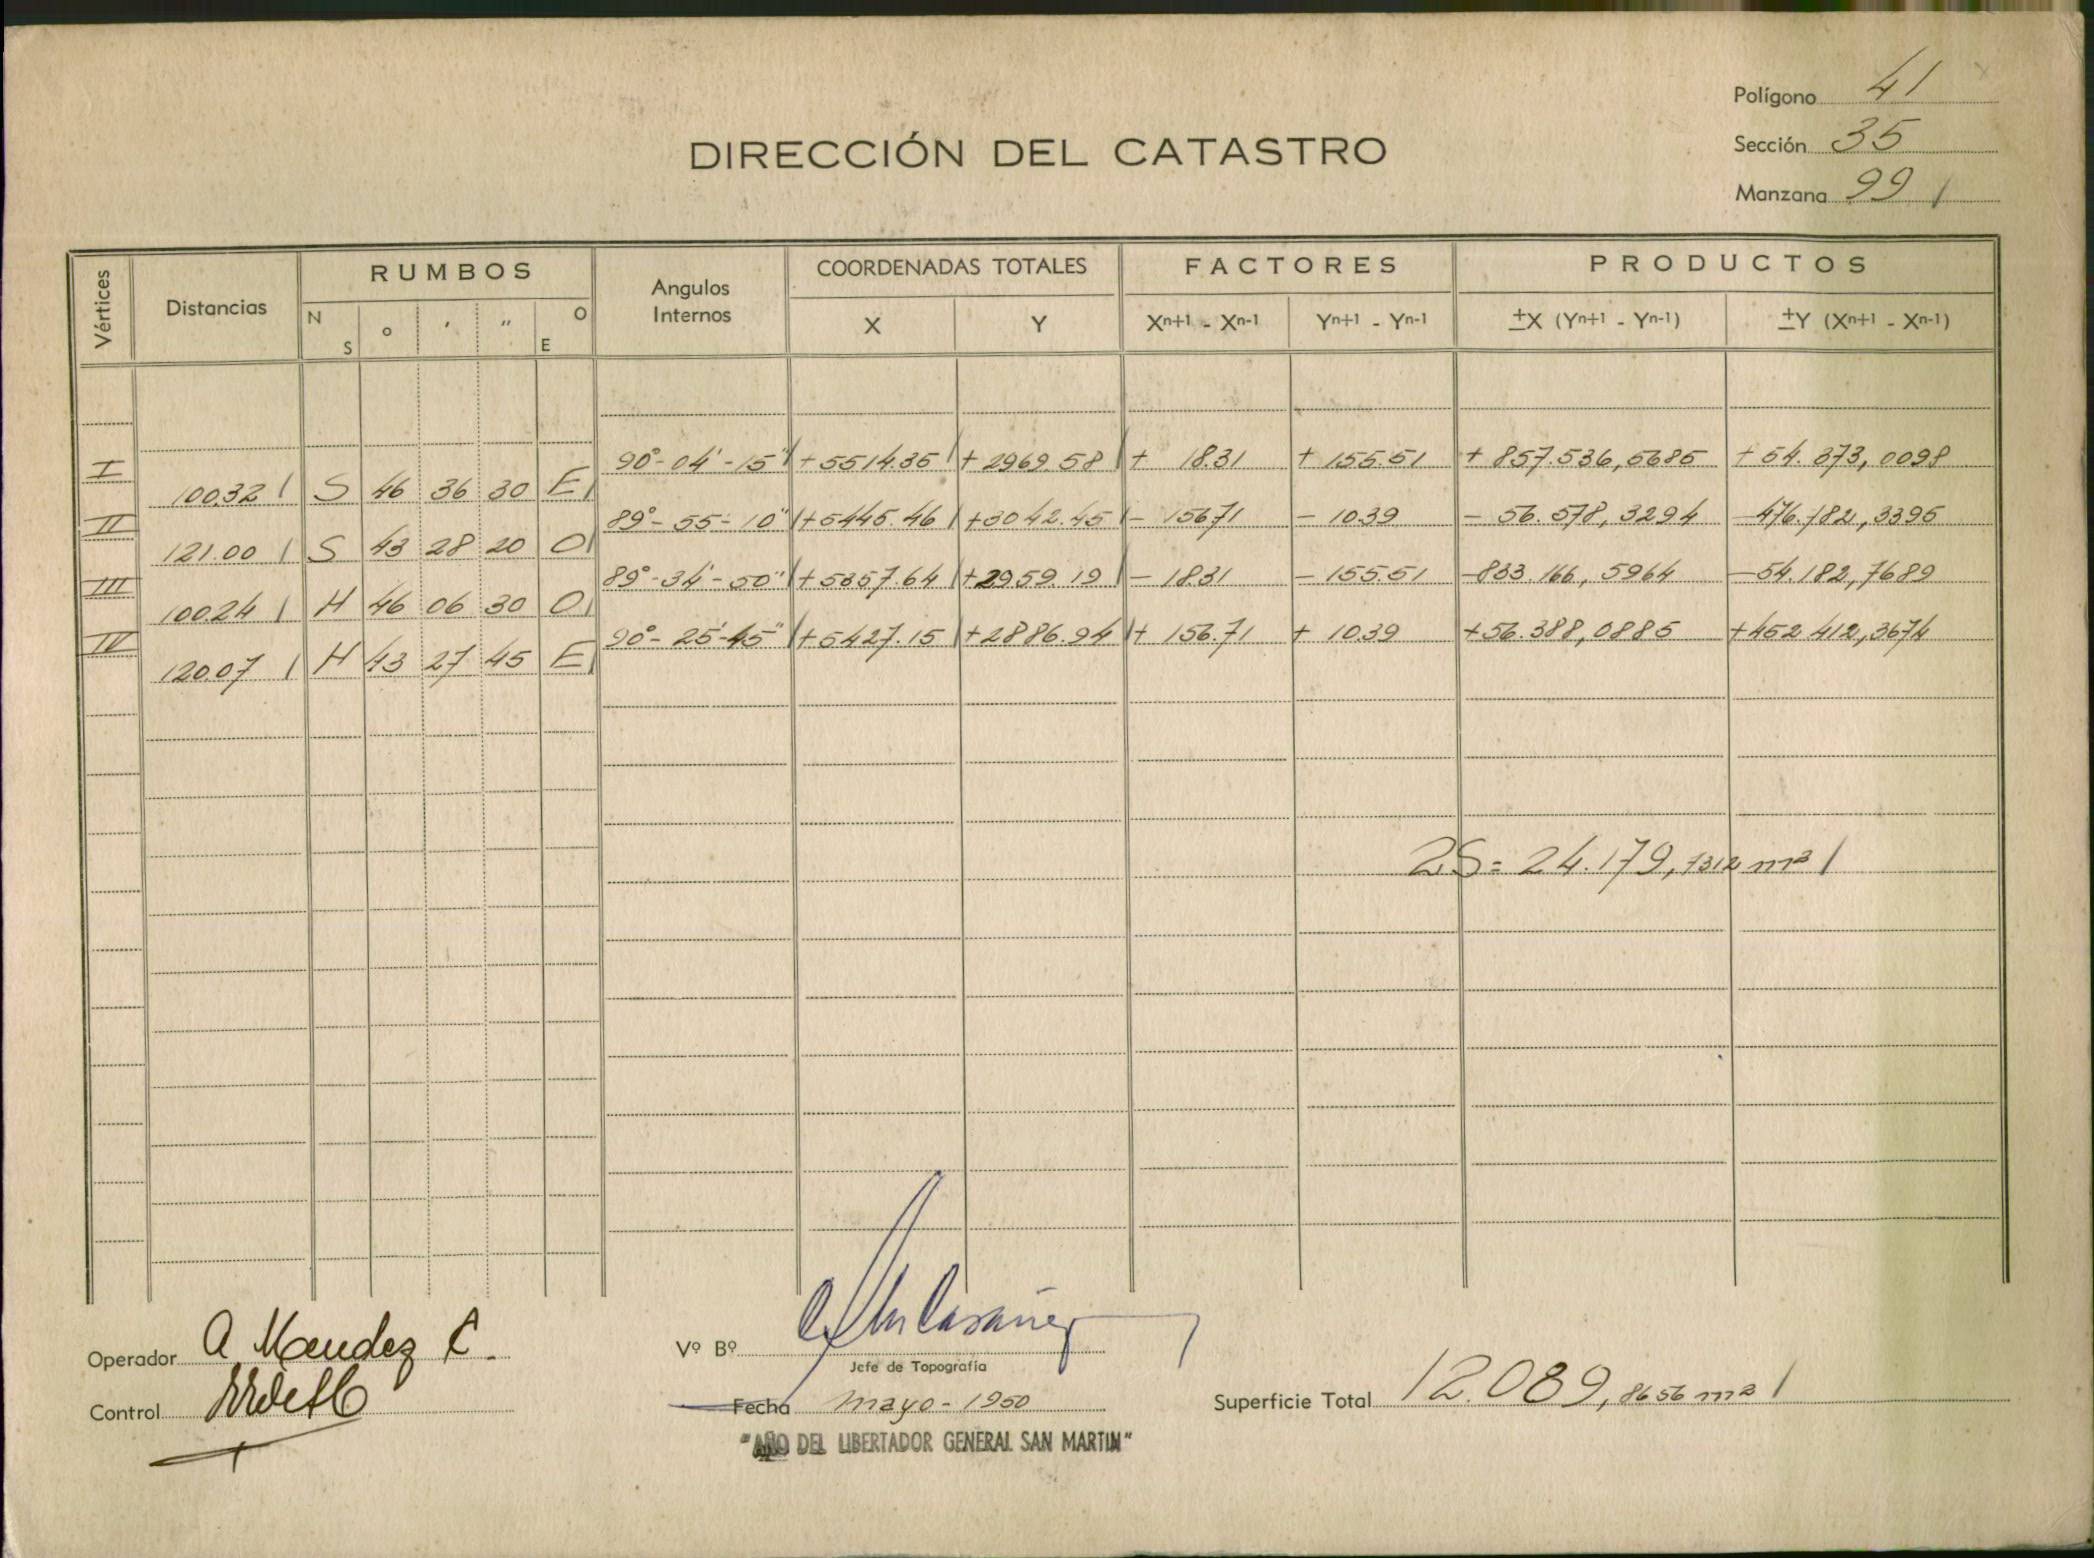 Polígono 41
Sección 35
Manzana 99
DIRECCIÓN DEL CATASTRO
Vértices Distancias RUMBOS Angulos Internos COORDENADAS TOTALES FACTORES PRODUCTOS
N S ° ' " O E X Y Xn+1 - Xn-1 Yn+1 - Yn-1 ±X (Yn+1 - Yn-1) ±Y (Xn+1 - Xn-1)
I 90°-04'-15" +5514.35 +2969.58 + 18.31 + 155.51 + 857.536,5685 + 54.373,0098
100.32 S 46 36 30 E
II 89°-55'-10" +5445.46 +3042.45 - 156.71 - 10.39 - 56.578,3294 -476.782,3395
121.00 S 43 28 20 O
III 89°-34'-50" +5357.64 +2959.19 - 18.31 - 155.51 -833.166,5964 -54.182,7689
100.24 N 46 06 30 O
IV 90°-25'-45" +5427.15 +2886.94 + 156.71 + 10.39 +56.388,0885 +452.412,3674
120.07 N 43 27 45 E
2S = 24.179,7312 m²
Operador A Mendez C.
Vº Bº
Jefe de Topografía
Control
Fecha mayo - 1950
Superficie Total 12.089,8656 m²
"AÑO DEL LIBERTADOR GENERAL SAN MARTIN"